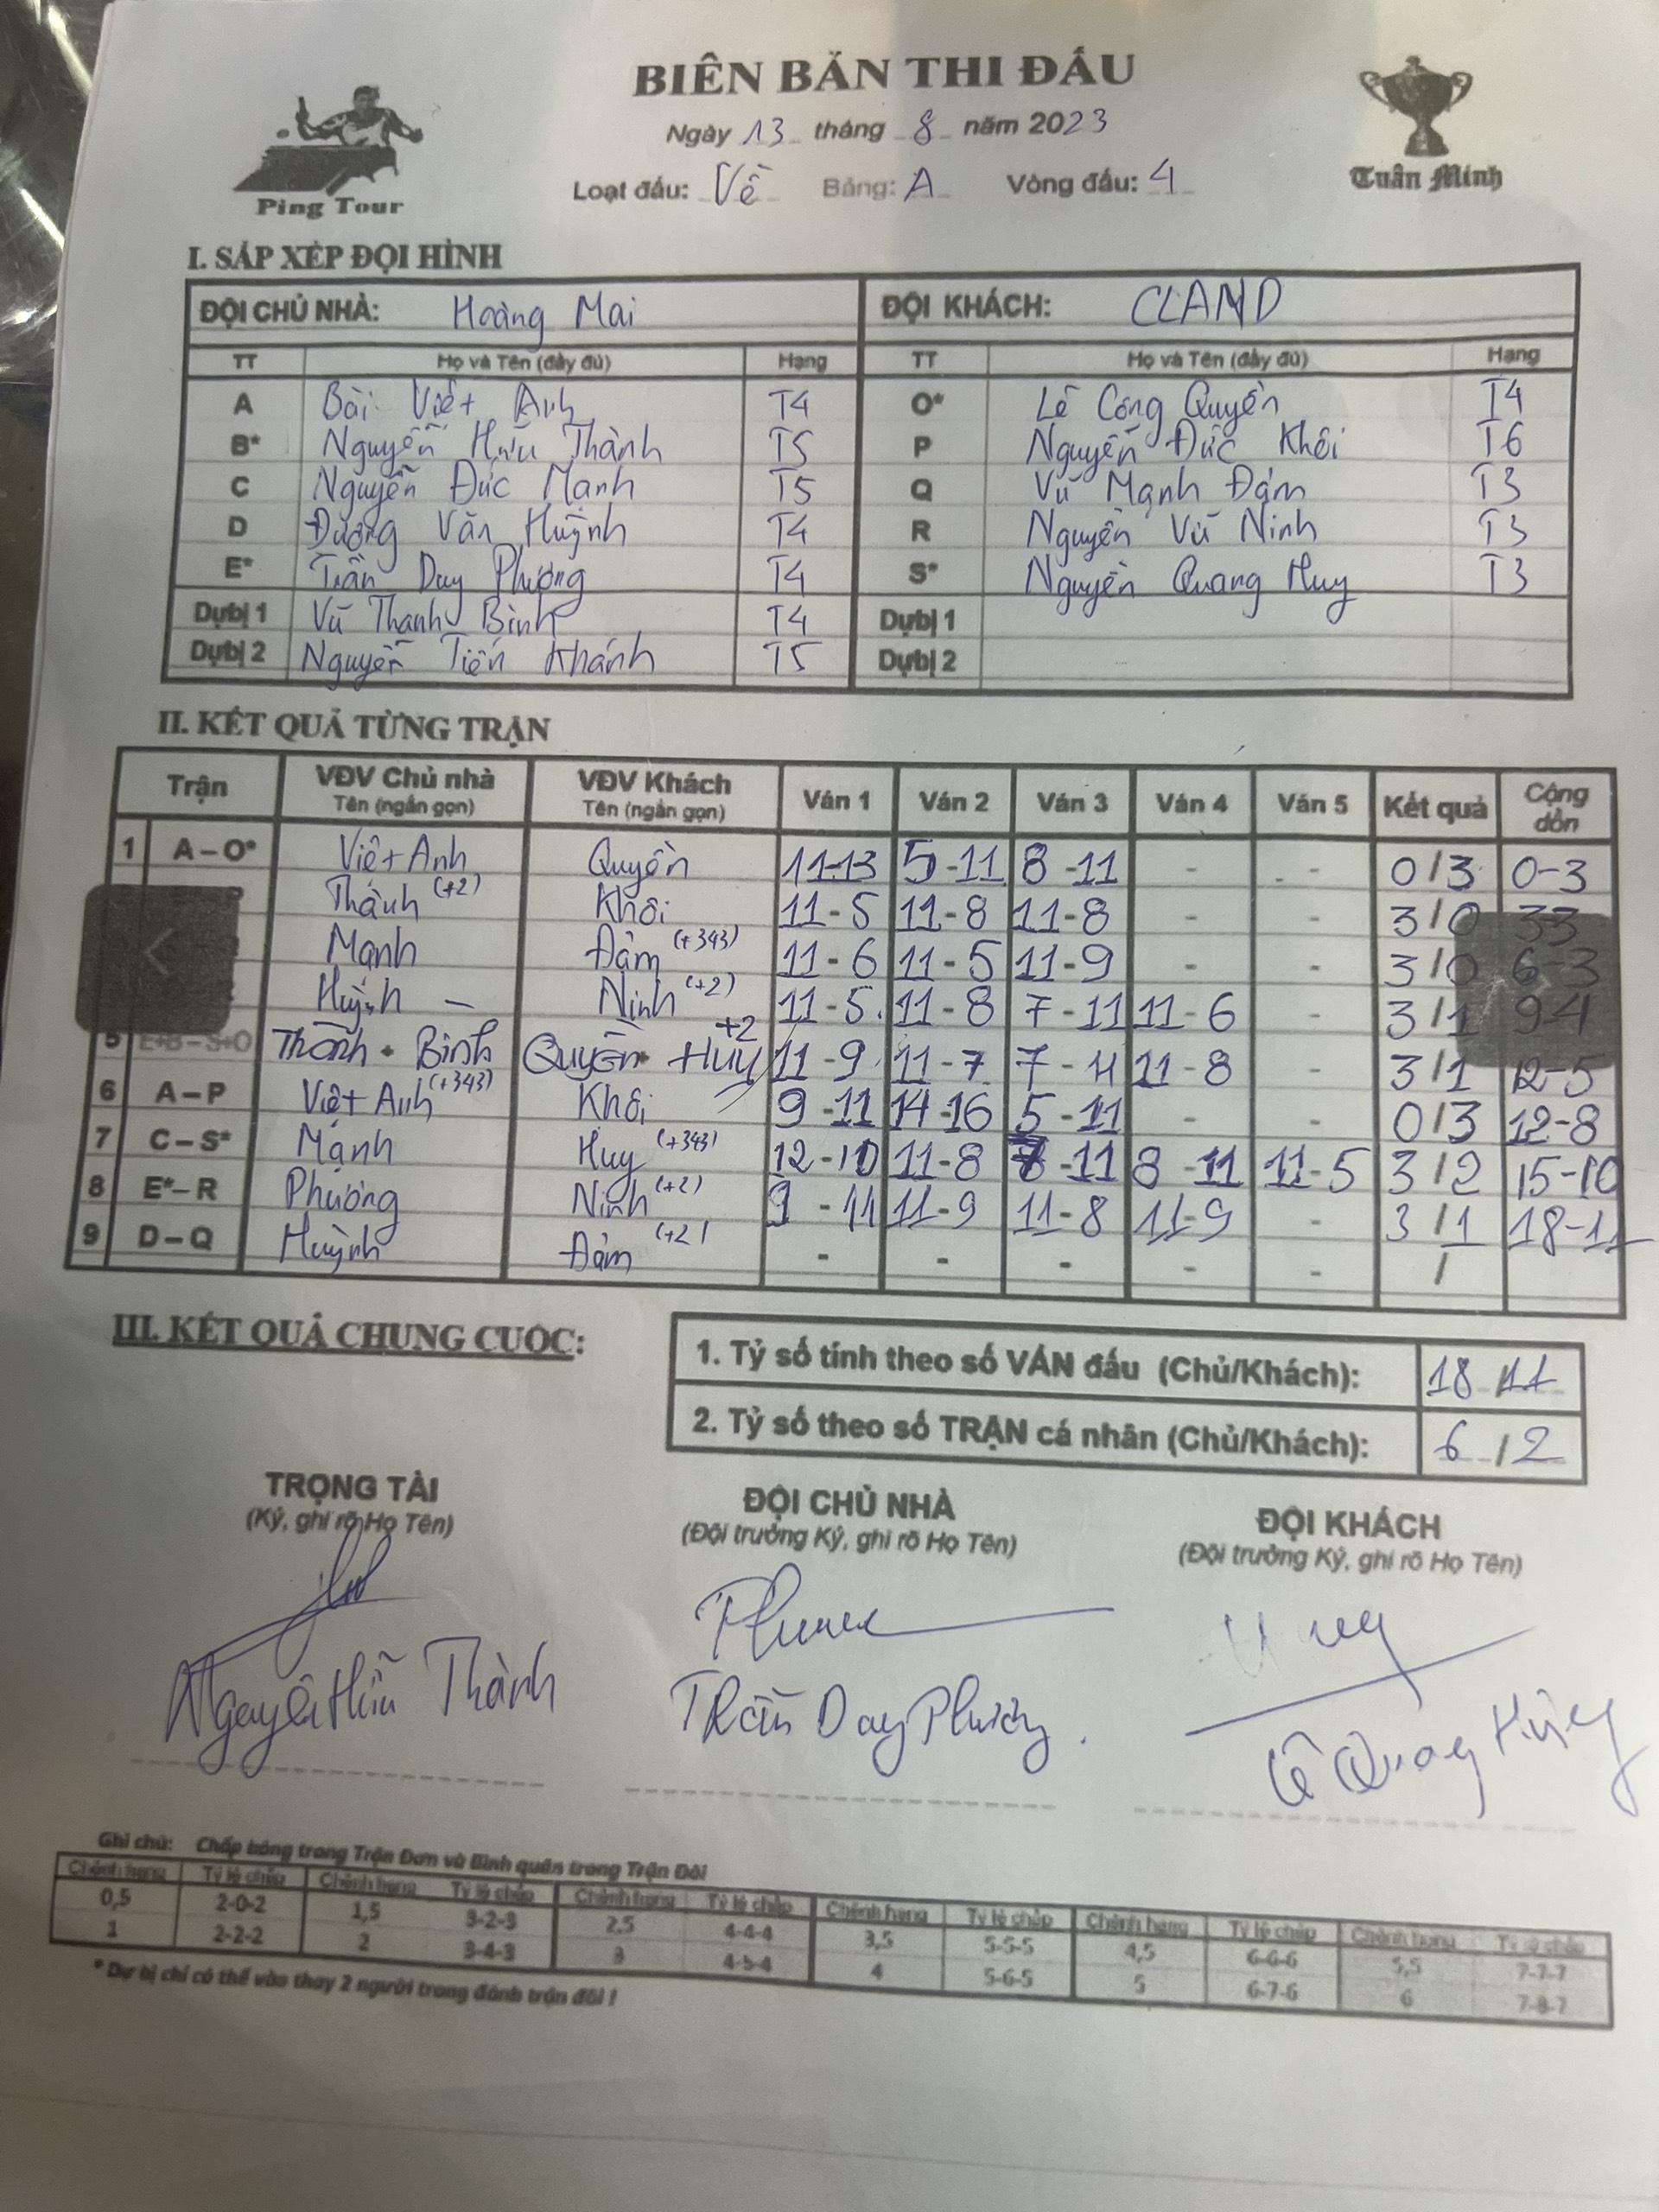 BIÊN BẢN THI ĐẤU
Ngày 13 tháng 8 năm 2023
Loạt đấu: Về Bảng: A Vòng đấu: 4
Ping Tour
Tuân Minh
I. SẮP XẾP ĐỘI HÌNH
ĐỘI CHỦ NHÀ: Hoàng Mai ĐỘI KHÁCH: CLAND
TT Họ và Tên (đầy đủ) Hạng TT Họ và Tên (đầy đủ) Hạng
A Bùi Việt Anh T4 O* Lê Công Quyền T4
B* Nguyễn Hữu Thành T5 P Nguyễn Đức Khôi T6
C Nguyễn Đức Mạnh T5 Q Vũ Mạnh Đảm T3
D Đường Văn Huỳnh T4 R Nguyễn Vũ Ninh T3
E* Trần Duy Phương T4 S* Nguyễn Quang Huy T3
Dự bị 1 Vũ Thanh Bình T4 Dự bị 1
Dự bị 2 Nguyễn Tiến Khánh T5 Dự bị 2
II. KẾT QUẢ TỪNG TRẬN
Trận VĐV Chủ nhà Tên (ngắn gọn) VĐV Khách Tên (ngắn gọn) Ván 1 Ván 2 Ván 3 Ván 4 Ván 5 Kết quả Cộng dồn
1 A – O* Việt Anh Quyền 11-13 5-11 8-11 - - 0/3 0-3
Thành (+2) Khôi 11-5 11-8 11-8 - - 3/0 33
Mạnh Đảm (+343) 11-6 11-5 11-9 - - 3/0 6-3
Huỳnh Ninh (+2) 11-5 11-8 7-11 11-6 - 3/1 9-4
5 E+B – S+O Thành - Bình Quyền - Huy +2 11-9 11-7 7-11 11-8 - 3/1 12-5
6 A – P Việt Anh (+343) Khôi 9-11 14-16 5-11 - - 0/3 12-8
7 C – S* Mạnh Huy (+343) 12-10 11-8 8-11 8-11 11-5 3/2 15-10
8 E* – R Phương Ninh (+2) 9-11 11-9 11-8 11-9 - 3/1 18-11
9 D – Q Huỳnh Đảm (+2) - - - - - /
III. KẾT QUẢ CHUNG CUỘC:
1. Tỷ số tính theo số VÁN đấu (Chủ/Khách): 18/11
2. Tỷ số theo số TRẬN cá nhân (Chủ/Khách): 6/2
TRỌNG TÀI ĐỘI CHỦ NHÀ ĐỘI KHÁCH
(Ký, ghi rõ Họ Tên) (Đội trưởng Ký, ghi rõ Họ Tên) (Đội trưởng Ký, ghi rõ Họ Tên)
Nguyễn Hữu Thành Trần Duy Phương Lê Quang
Ghi chú: Chấp bóng trong Trận Đơn và Bình quân trong Trận Đôi
Chênh hạng Tỷ lệ chấp Chênh hạng Tỷ lệ chấp Chênh hạng Tỷ lệ chấp Chênh hạng Tỷ lệ chấp Chênh hạng Tỷ lệ chấp Chênh hạng Tỷ lệ chấp
0,5 2-0-2 1,5 3-2-3 2,5 4-4-4 3,5 5-5-5 4,5 6-6-6 5,5 7-7-7
1 2-2-2 2 3-4-3 3 4-5-4 4 5-6-5 5 6-7-6 6 7-8-7
* Dự bị chỉ có thể vào thay 2 người trong đánh trận đôi !